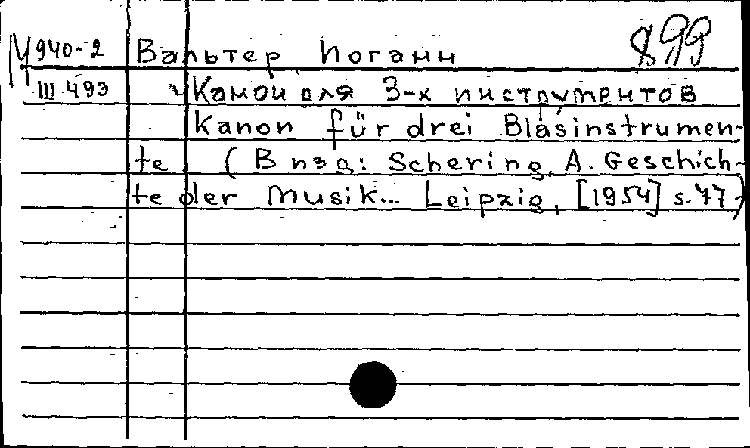 899
М 940-2 Вальтер Иоганн
III 493 Канон для 3-х инструментов
Kanon für drei Bläsinstrumen-
te (В изд: Schering, A. Geschich-
te der Musik... Leipzig, [1954] s. 77)